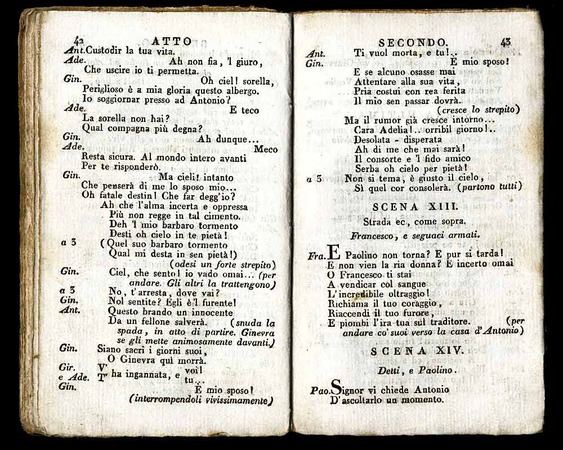 42 ATTO
Ant. Custodir la tua vita.
Ade. Ah non fia, 'l giuro,
Che uscire io ti permetta.
Gin. Oh ciel! sorella,
Periglioso è a mia gloria questo albergo.
Io soggiornar presso ad Antonio?
Ade. E teco
La sorella non hai?
Qual compagna più degna?
Gin. Ah dunque...
Ade. Meco
Resta sicura. Al mondo intero avanti
Per te risponderò.
Gin. Ma cieli! intanto
Che penserà di me lo sposo mio...
Oh fatale destin! Che far degg'io?
Ah che l'alma incerta e oppressa
Più non regge in tal cimento.
Deh 'l mio barbaro tormento
Desti oh cielo in te pietà!
a 3 (Quel suo barbaro tormento
Qual mi desta in sen pietà!)
(odesi un forte strepito)
Gin. Ciel, che sento! io vado omai... (per
andare. Gli altri la trattengono)
a 3 No, t'arresta, dove vai?
Gin. Nol sentite? Egli è 'l furente!
Ant. Questo brando un innocente
Da un fellone salverà. (snuda la
spada, in atto di partire. Ginevra
se gli mette animosamente davanti)
Gin. Siano sacri i giorni suoi,
O Ginevra qui morrà.
Gir. V' voi!
e Ade. T' ha ingannata, e tu...
Gin. È mio sposo!
(interrompendoli vivissimamente)
SECONDO. 43
Ant. Ti vuol morta, e tu!..
Gin. È mio sposo!
E se alcuno osasse mai
Attentare alla sua vita,
Pria costui con rea ferita
Il mio sen passar dovrà.
(cresce lo strepito)
Ma il rumor già cresce intorno...
Cara Adelia!.. orribil giorno!..
Desolata - disperata
Ah di me che mai sarà!
Il consorte e 'l fido amico
Serba oh cielo per pietà!
a 3 Non si tema, è giusto il cielo,
Sì quel cor consolerà. (partono tutti)
SCENA XIII.
Strada ec, come sopra.
Francesco, e seguaci armati.
Fra. E Paolino non torna? E pur si tarda!
E non vien la ria donna? E incerto omai
O Francesco ti stai
A vendicar col sangue
L'incredibile oltraggio!
Richiama il tuo coraggio,
Riaccendi il tuo furore,
E piombi l'ira tua sul traditore. (per
andare co' suoi verso la casa d'Antonio)
SCENA XIV.
Detti, e Paolino.
Pao. Signor vi chiede Antonio
D'ascoltarlo un momento.